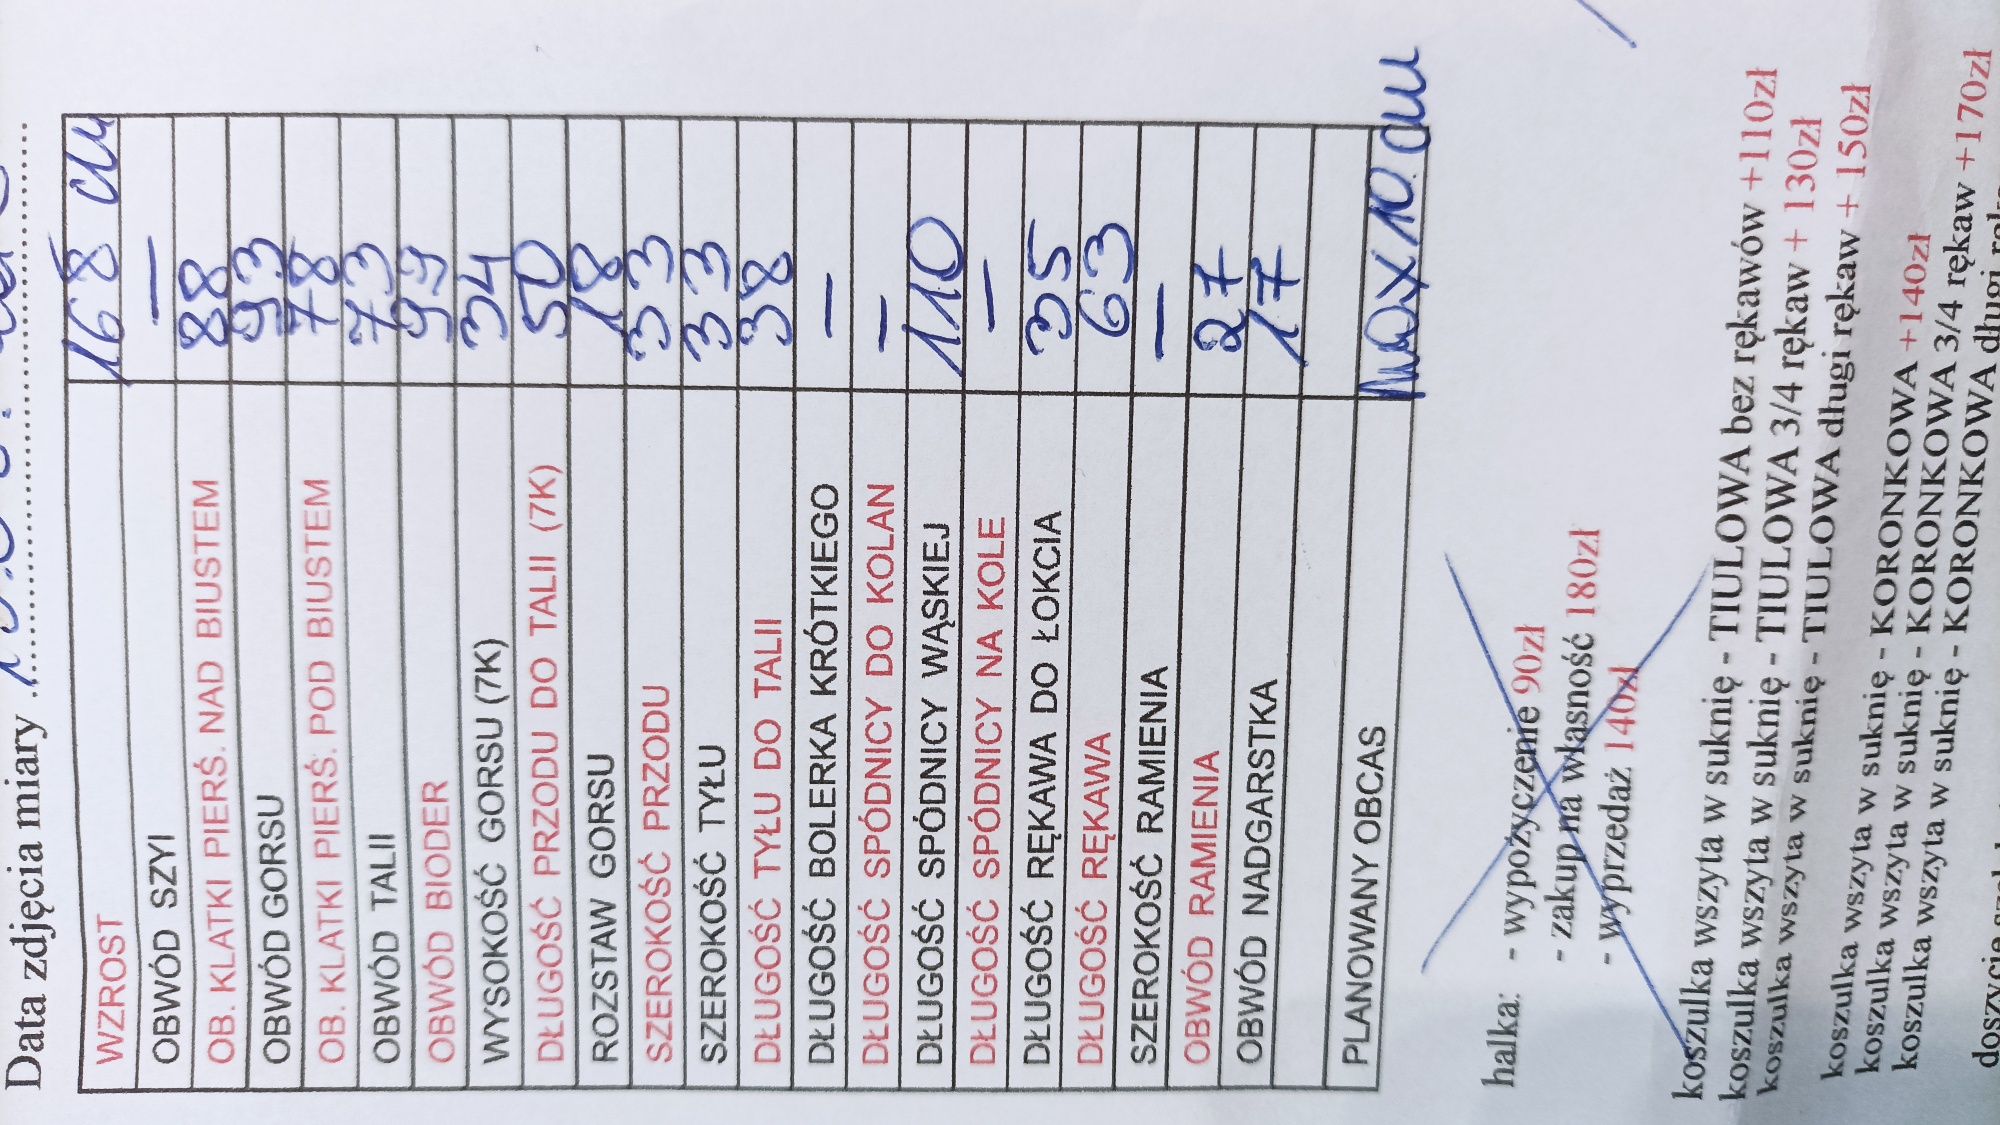 Data zdjęcia miary
WZROST 168 cm
OBWÓD SZYI —
OB. KLATKI PIERŚ. NAD BIUSTEM 88
OBWÓD GORSU 93
OB. KLATKI PIERŚ. POD BIUSTEM 78
OBWÓD TALII 73
OBWÓD BIODER 99
WYSOKOŚĆ GORSU (7K) 34
DŁUGOŚĆ PRZODU DO TALII (7K) 50
ROZSTAW GORSU 18
SZEROKOŚĆ PRZODU 33
SZEROKOŚĆ TYŁU 33
DŁUGOŚĆ TYŁU DO TALII 38
DŁUGOŚĆ BOLERKA KRÓTKIEGO —
DŁUGOŚĆ SPÓDNICY DO KOLAN —
DŁUGOŚĆ SPÓDNICY WĄSKIEJ 110
DŁUGOŚĆ SPÓDNICY NA KOLE —
DŁUGOŚĆ RĘKAWA DO ŁOKCIA 35
DŁUGOŚĆ RĘKAWA 63
SZEROKOŚĆ RAMIENIA —
OBWÓD RAMIENIA 27
OBWÓD NADGARSTKA 17
PLANOWANY OBCAS max 10 cm
halka: - wypożyczenie 90zł
- zakup na własność 180zł
- wyprzedaż 140zł
koszulka wszyta w suknię - TIULOWA bez rękawów +110zł
koszulka wszyta w suknię - TIULOWA 3/4 rękaw + 130zł
koszulka wszyta w suknię - TIULOWA długi rękaw + 150zł
koszulka wszyta w suknię - KORONKOWA +140zł
koszulka wszyta w suknię - KORONKOWA 3/4 rękaw +170zł
koszulka wszyta w suknię - KORONKOWA długi
doszycie